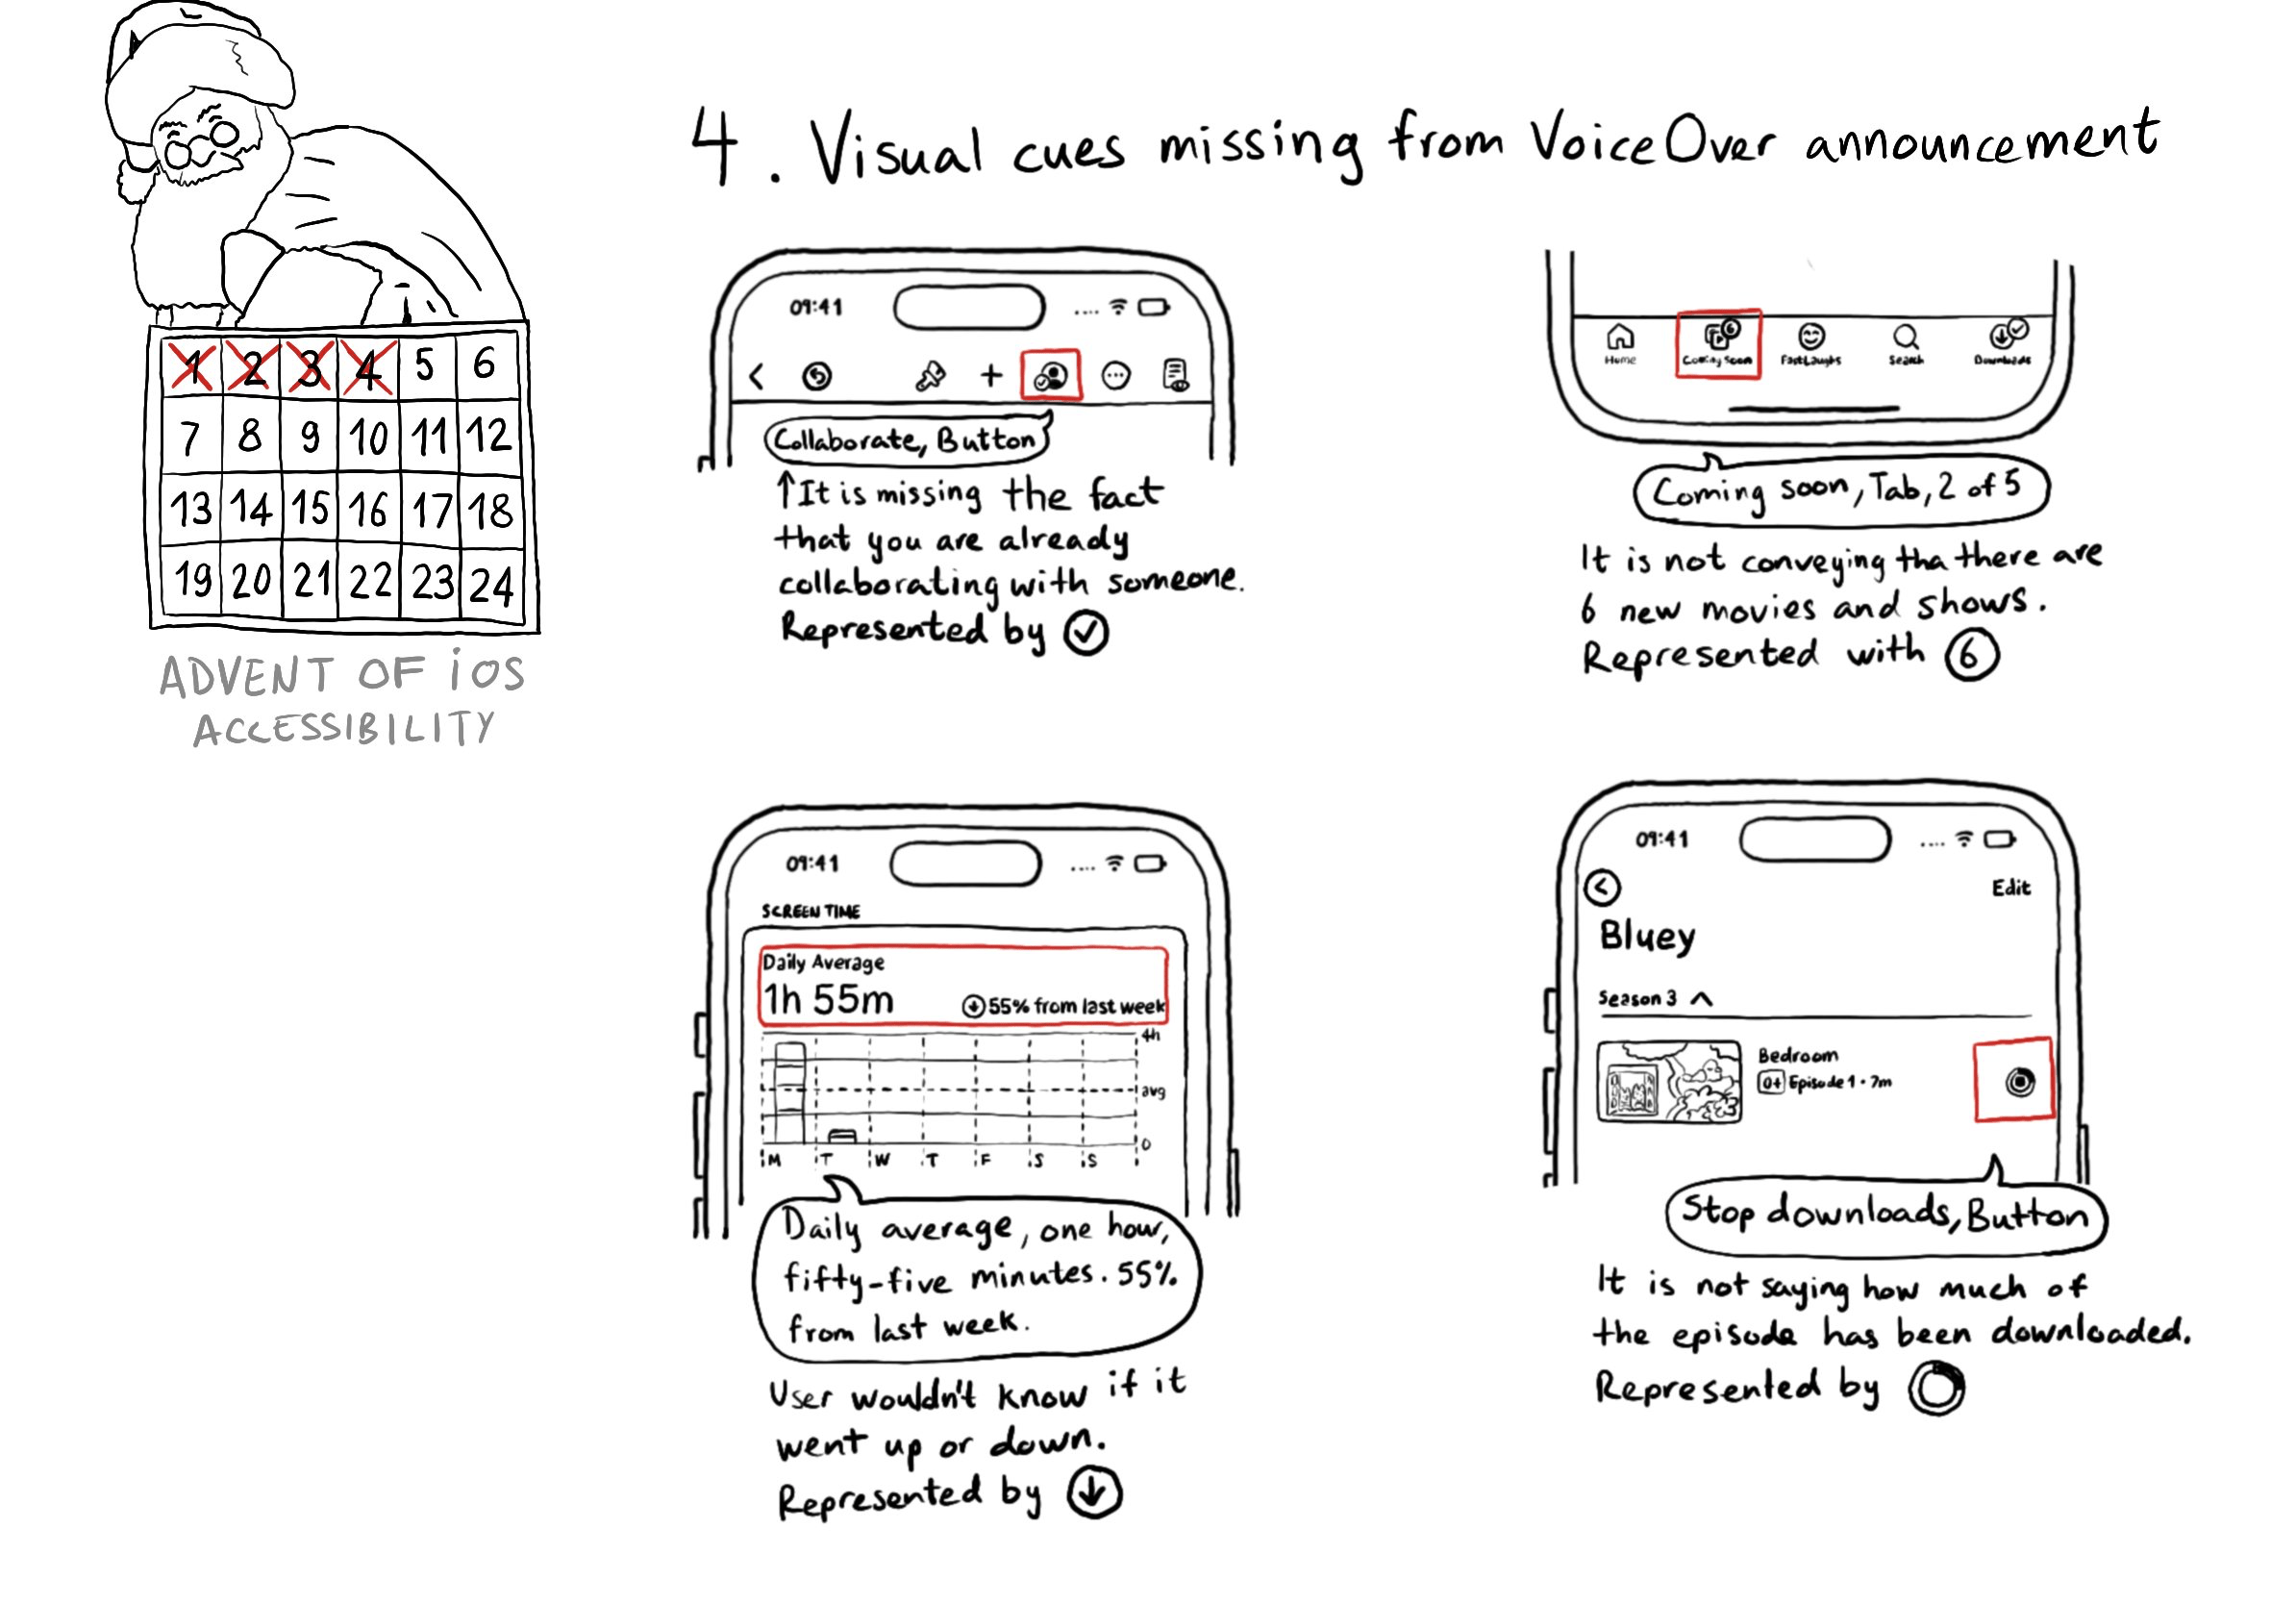 4. Visual cues missing from VoiceOver announcement
1 2 3 4 5 6
7 8 9 10 11 12
13 14 15 16 17 18
19 20 21 22 23 24
ADVENT OF iOS
ACCESSIBILITY
09:41
Collaborate, Button
↑It is missing the fact
that you are already
collaborating with someone.
Represented by
6
Home Coming Soon Fast Laughs Search Downloads
Coming soon, Tab, 2 of 5
It is not conveying tha there are
6 new movies and shows.
Represented with 6
09:41
SCREEN TIME
Daily Average
1h 55m
55% from last week
4h
avg
0
M T W T F S S
Daily average, one hour,
fifty-five minutes. 55%
from last week.
User wouldn't know if it
went up or down.
Represented by
09:41
Edit
Bluey
Season 3
Bedroom
0+ Episode 1 · 7m
Stop downloads, Button
It is not saying how much of
the episode has been downloaded.
Represented by